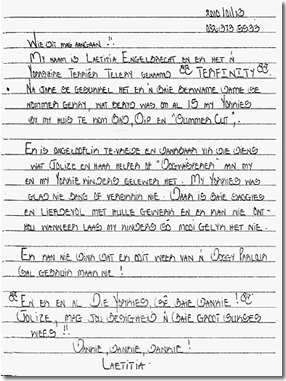 2010/01/13
Wie dit mag aangaan!!
My naam is Laetitia Engelbrecht en ek het 'n
Yorkshire Terriër Tellery genaamd "TERFINITY"
Na jare se gesukkel het ek 'n baie bekwame dame se
nommer gekry, wat bereid was om al 13 my Yorkies
by my huis te kom Bad, Dip en "Summer Cut".
Ek is ongelooflik tevrede en dankbaar vir die diens
wat Jolize en haar helper of "Dogwhisperer" aan my
en my Yorkie kinders gelewer het. My Yorkies was
glad nie bang of verskrik nie. Daar is baie saggies
en liefdevol met hulle gewerk en ek kan nie ont-
hou wanneer laas my kinders so mooi gelyk het nie.
Ek kan nie dink dat ek ooit weer van 'n Doggy Parlour
sal gebruik maak nie!
Ek en al Die Yorkies, sê baie dankie!
Jolize, mag jou besigheid 'n baie groot sukses
wees!!
Dankie, dankie, dankie!
Laetitia.